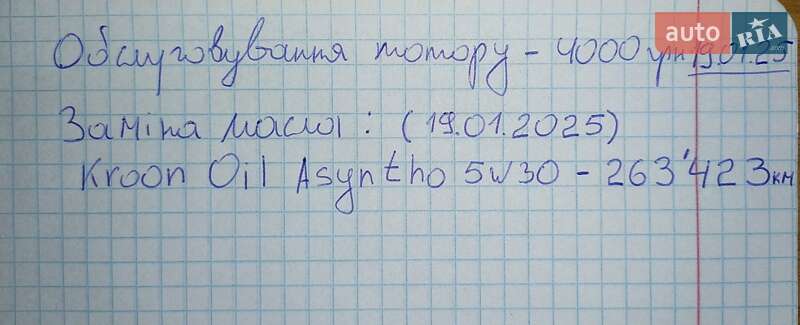 auto RIA
Обслуговування мотору - 4000 грн 19.01.25
Заміна масла: (19.01.2025)
Kroon Oil Asyntho 5w30 - 263'423км